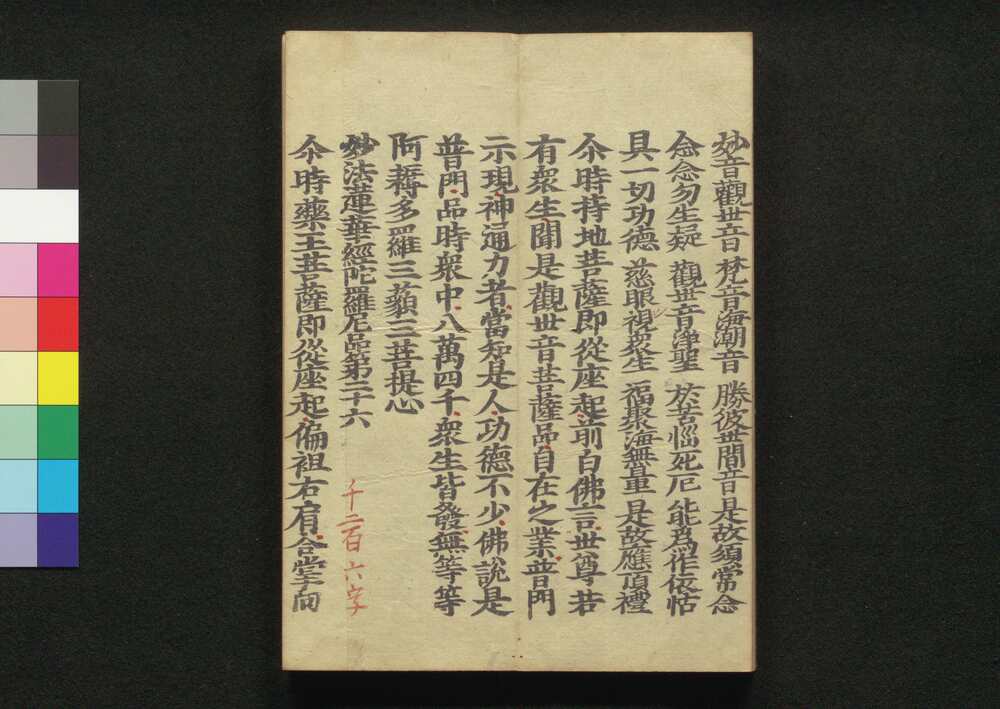 妙音觀世音 梵音海潮音 勝彼世間音 是故須常念
念念勿生疑 觀世音淨聖 於苦惱死厄 能爲作依怙
具一切功德 慈眼視衆生 福聚海無量 是故應頂禮
尒時持地菩薩即從座起前白佛言世尊若
有衆生聞是觀世音菩薩品自在之業普門
示現神通力者當知是人功德不少佛說是
普門品時衆中八萬四千衆生皆發無等等
阿耨多羅三藐三菩提心
妙法蓮華經陀羅尼品第二十六
千二百六字
尒時藥王菩薩即從座起偏袒右肩合掌向